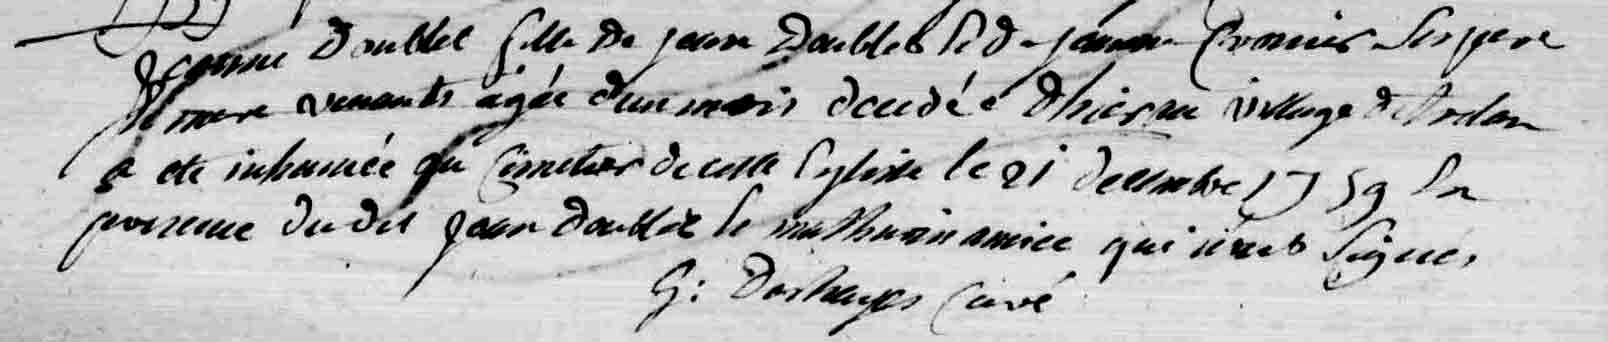 1759
Jeanne Doublet fille de jean Doublet & de jeanne Cronier ses pere
& mere vivants agée d'un mois decedée d'hier au village
a eté inhumée au Cimetier de cette Eglise le 21 decembre 1759 En
presence du dit jean Doublet & mathurin qui n'ont signé,
G: Deshayes Curé